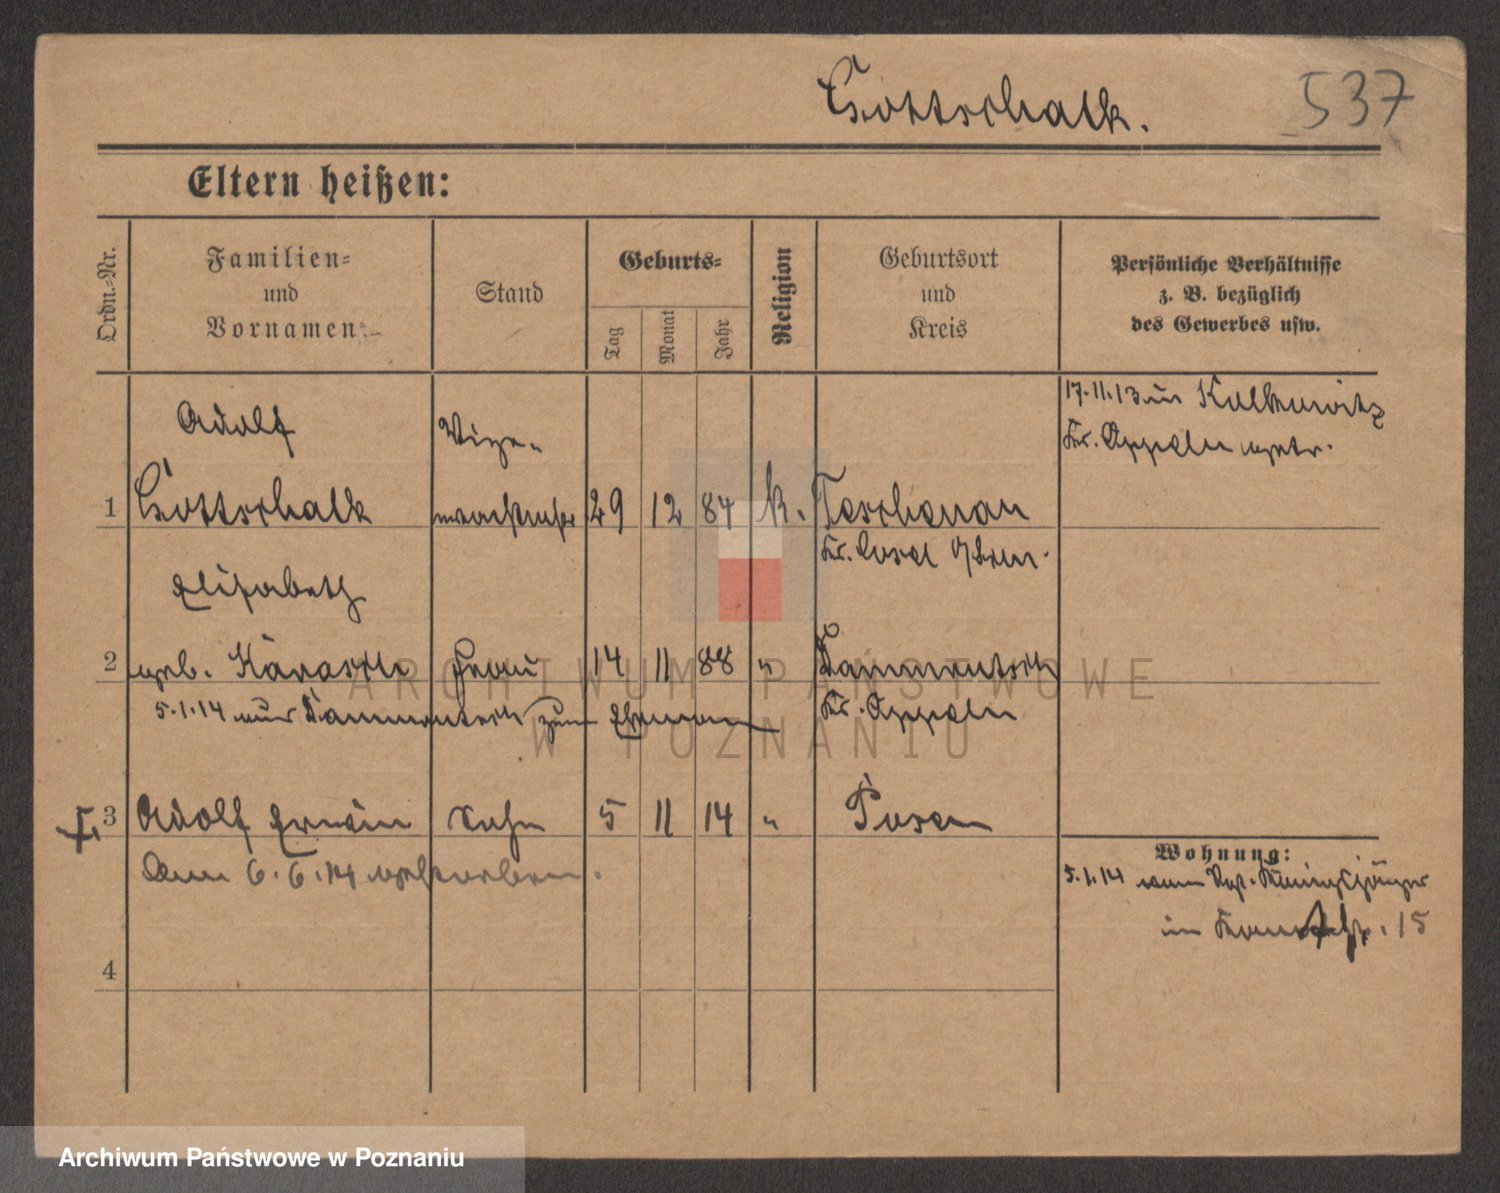 Gottschalk.
537
Eltern heißen:
Ordn.-Nr.
Familien-
und
Vornamen:
Stand
Geburts-
Tag
Monat
Jahr
Religion
Geburtsort
und
Kreis
Persönliche Verhältnisse
z. B. bezüglich
des Gewerbes usw.
17.11.13 in
Kr. Oppeln getr.
Adolf
Vize-
1 Gottschalk wachtmstr 29 12 84 k. Teschenau
Kr. Cosel
Elisabeth
2 geb. Frau 14 11 88 "
5.1.14 zum Ehemann
Kr. Oppeln
3 Adolf Erwin Sohn 5 11 14 " Posen
Am 6.6.14 gestorben.
Wohnung:
5.1.14 vom Rgt. Königsjäger
in 15
4
ARCHIWUM PAŃSTWOWE
W POZNANIU
Archiwum Państwowe w Poznaniu